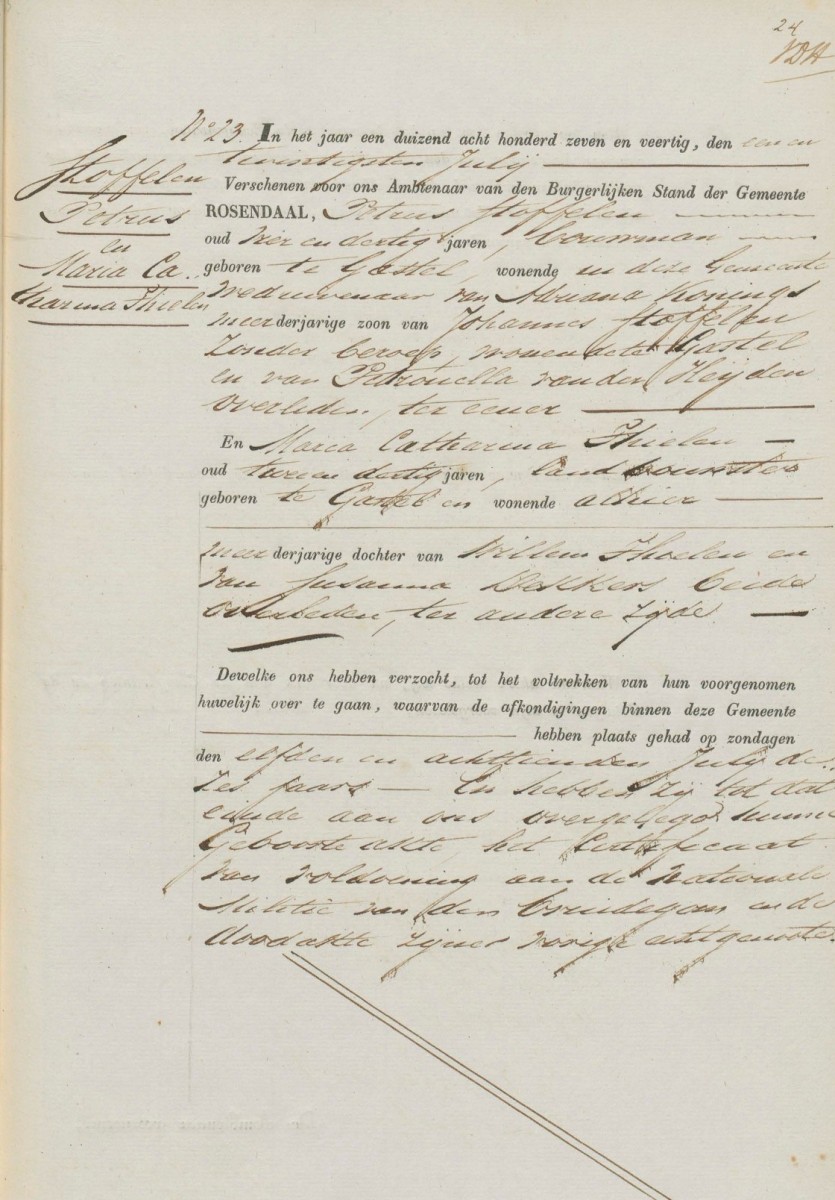 24
VDH
N° 23. In het jaar een duizend acht honderd zeven en veertig, den een en
twentigsten July
Stoffelen
Petrus
en
Maria Ca-
tharina Thielen
Verschenen voor ons Ambtenaar van den Burgerlijken Stand der Gemeente
ROSENDAAL, Petrus Stoffelen
oud vier en dertig jaren, bouwman
geboren te Gastel, wonende in deze Gemeente
Weduwenaar van Adriana Konings
meerderjarige zoon van Johannes Stoffelen
zonder beroep, wonende te Gastel
en van Petronella van der Heijden
overleden, ter eener
En Maria Catharina Thielen
oud twee en dertig jaren, landbouwster
geboren te Gastel en wonende alhier
meerderjarige dochter van Willem Thielen en
van Susanna Dekkers beide
overleden, ter andere zijde
Dewelke ons hebben verzocht, tot het voltrekken van hun voorgenomen
huwelijk over te gaan, waarvan de afkondigingen binnen deze Gemeente
hebben plaats gehad op zondagen
den elfden en achttienden July de-
zes jaars — En hebben zij tot dat
einde aan ons overgelegd hunne
Geboorte akte, het Certificaat
van voldoening aan de Nationale
Militie van den bruidegom en de
doodakte zijner vorige echtgenoote.